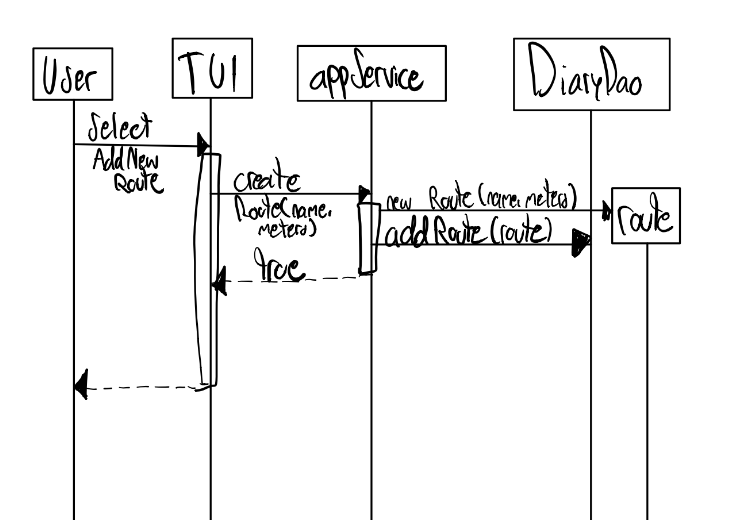 User
TUI
appService
DiaryDao
Select
AddNew
Route
create
Route(name,
meters)
new Route(name, meters)
route
addRoute(route)
true